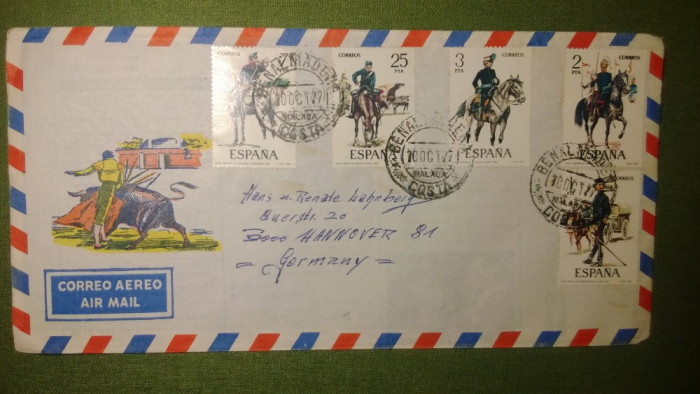 CORREOS
25
PTA
CORREOS
3
PTA
CORREOS
2
PTA
ESPAÑA
ESPAÑA
ESPAÑA
ESPAÑA
BENALMADENA
10 OCT 77
MALAGA
COSTA
BENALMADEN
10 OCT 77
MALAGA
COSTA
BENALMA
10 OCT 77
COSTA
Hans u. Renate
Querstr. 20
3000 HANNOVER 81
= Germany =
CORREO AEREO
AIR MAIL